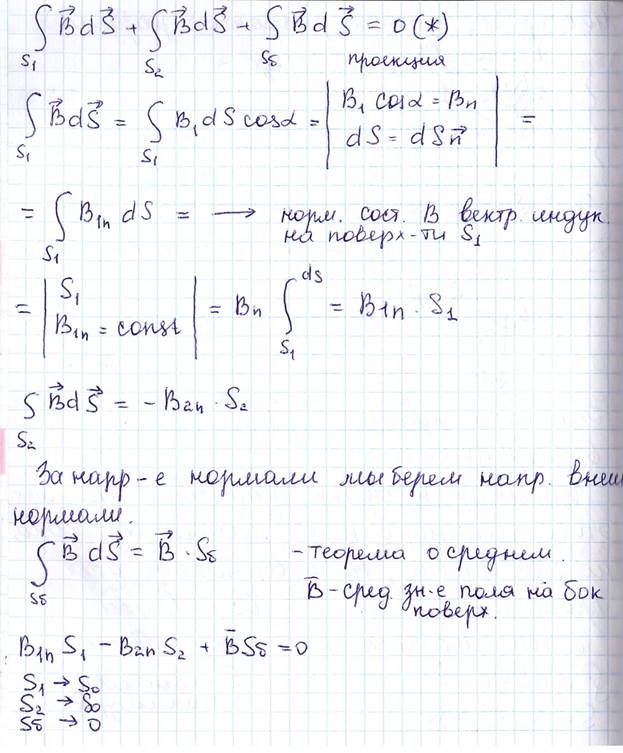 ∫_{S₁} B⃗dS⃗ + ∫_{S₂} B⃗dS⃗ + ∫_{Sδ} B⃗dS⃗ = 0 (*)
проекция
∫_{S₁} B⃗dS⃗ = ∫_{S₁} B₁dS cosα = | B₁ cosα = Bn
dS = dSn⃗ | =
= ∫_{S₁} B₁ₙ dS = → норм. сост. B вектр. индук.
на поверх-ти S₁
= | S₁
B₁ₙ = const | = Bn ∫_{S₁}^{dS} = B1n · S₁
∫_{S₂} B⃗dS⃗ = -B₂ₙ · S₂
За напр-е нормали мы берем напр. внеш
нормали.
∫_{Sδ} B⃗dS⃗ = B⃗ · Sδ - теорема о среднем.
B̄ - сред. зн-е поля на бок
поверх.
B₁ₙ S₁ - B₂ₙ S₂ + B̄Sδ = 0
S₁ → S₀
S₂ → S₀
Sδ → 0